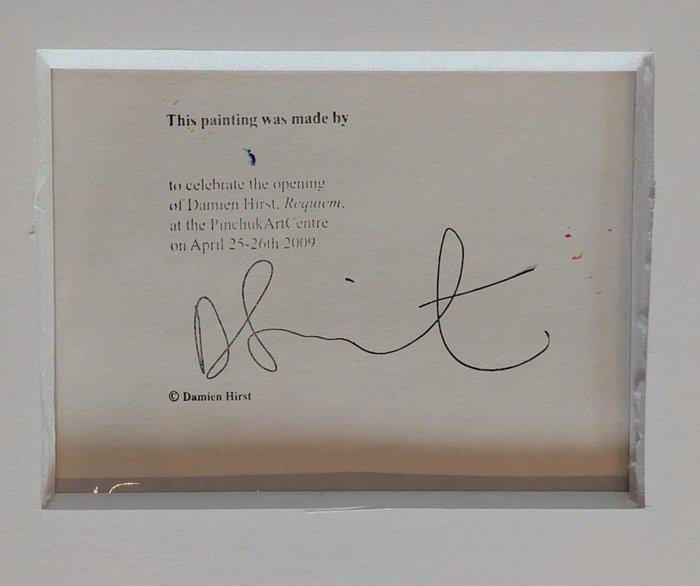 This painting was made by
to celebrate the opening
of Damien Hirst, Requiem,
at the PinchukArtCentre
on April 25-26th 2009
D Hirst
© Damien Hirst